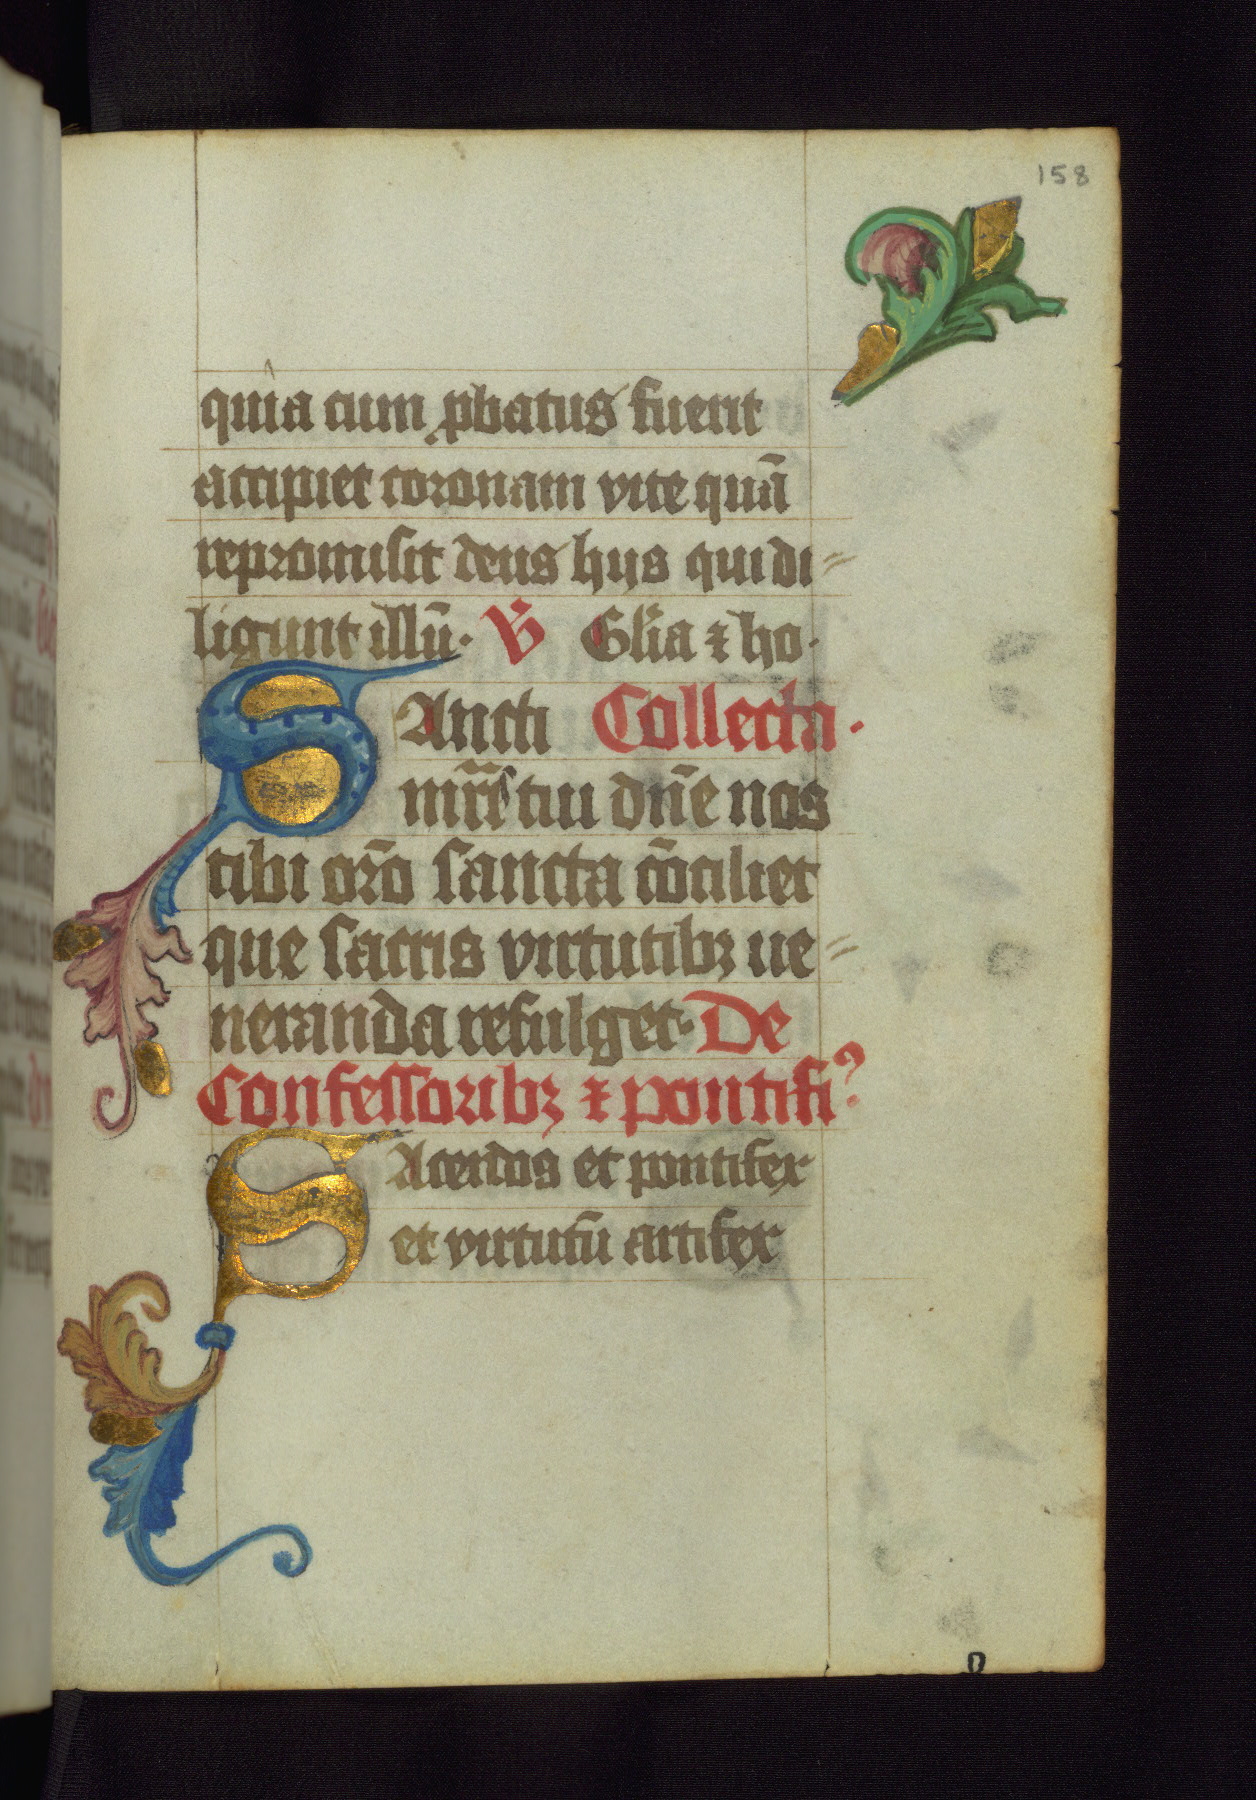 158
quia cum ꝓbatus fuerit
accipiet coronam vite quā
repromisit deus hijs qui di=
ligunt illū. ℣ Glīa ⁊ ho.
SAncti Collecta.
mr̄is tui dn̄e nos
tibi or̄o sancta cōciliet
que sacris virtutibꝫ ue=
neranda refulget. De
Confessoribꝫ ⁊ pontifi?
SAcerdos et pontifex
et virtutū artifex